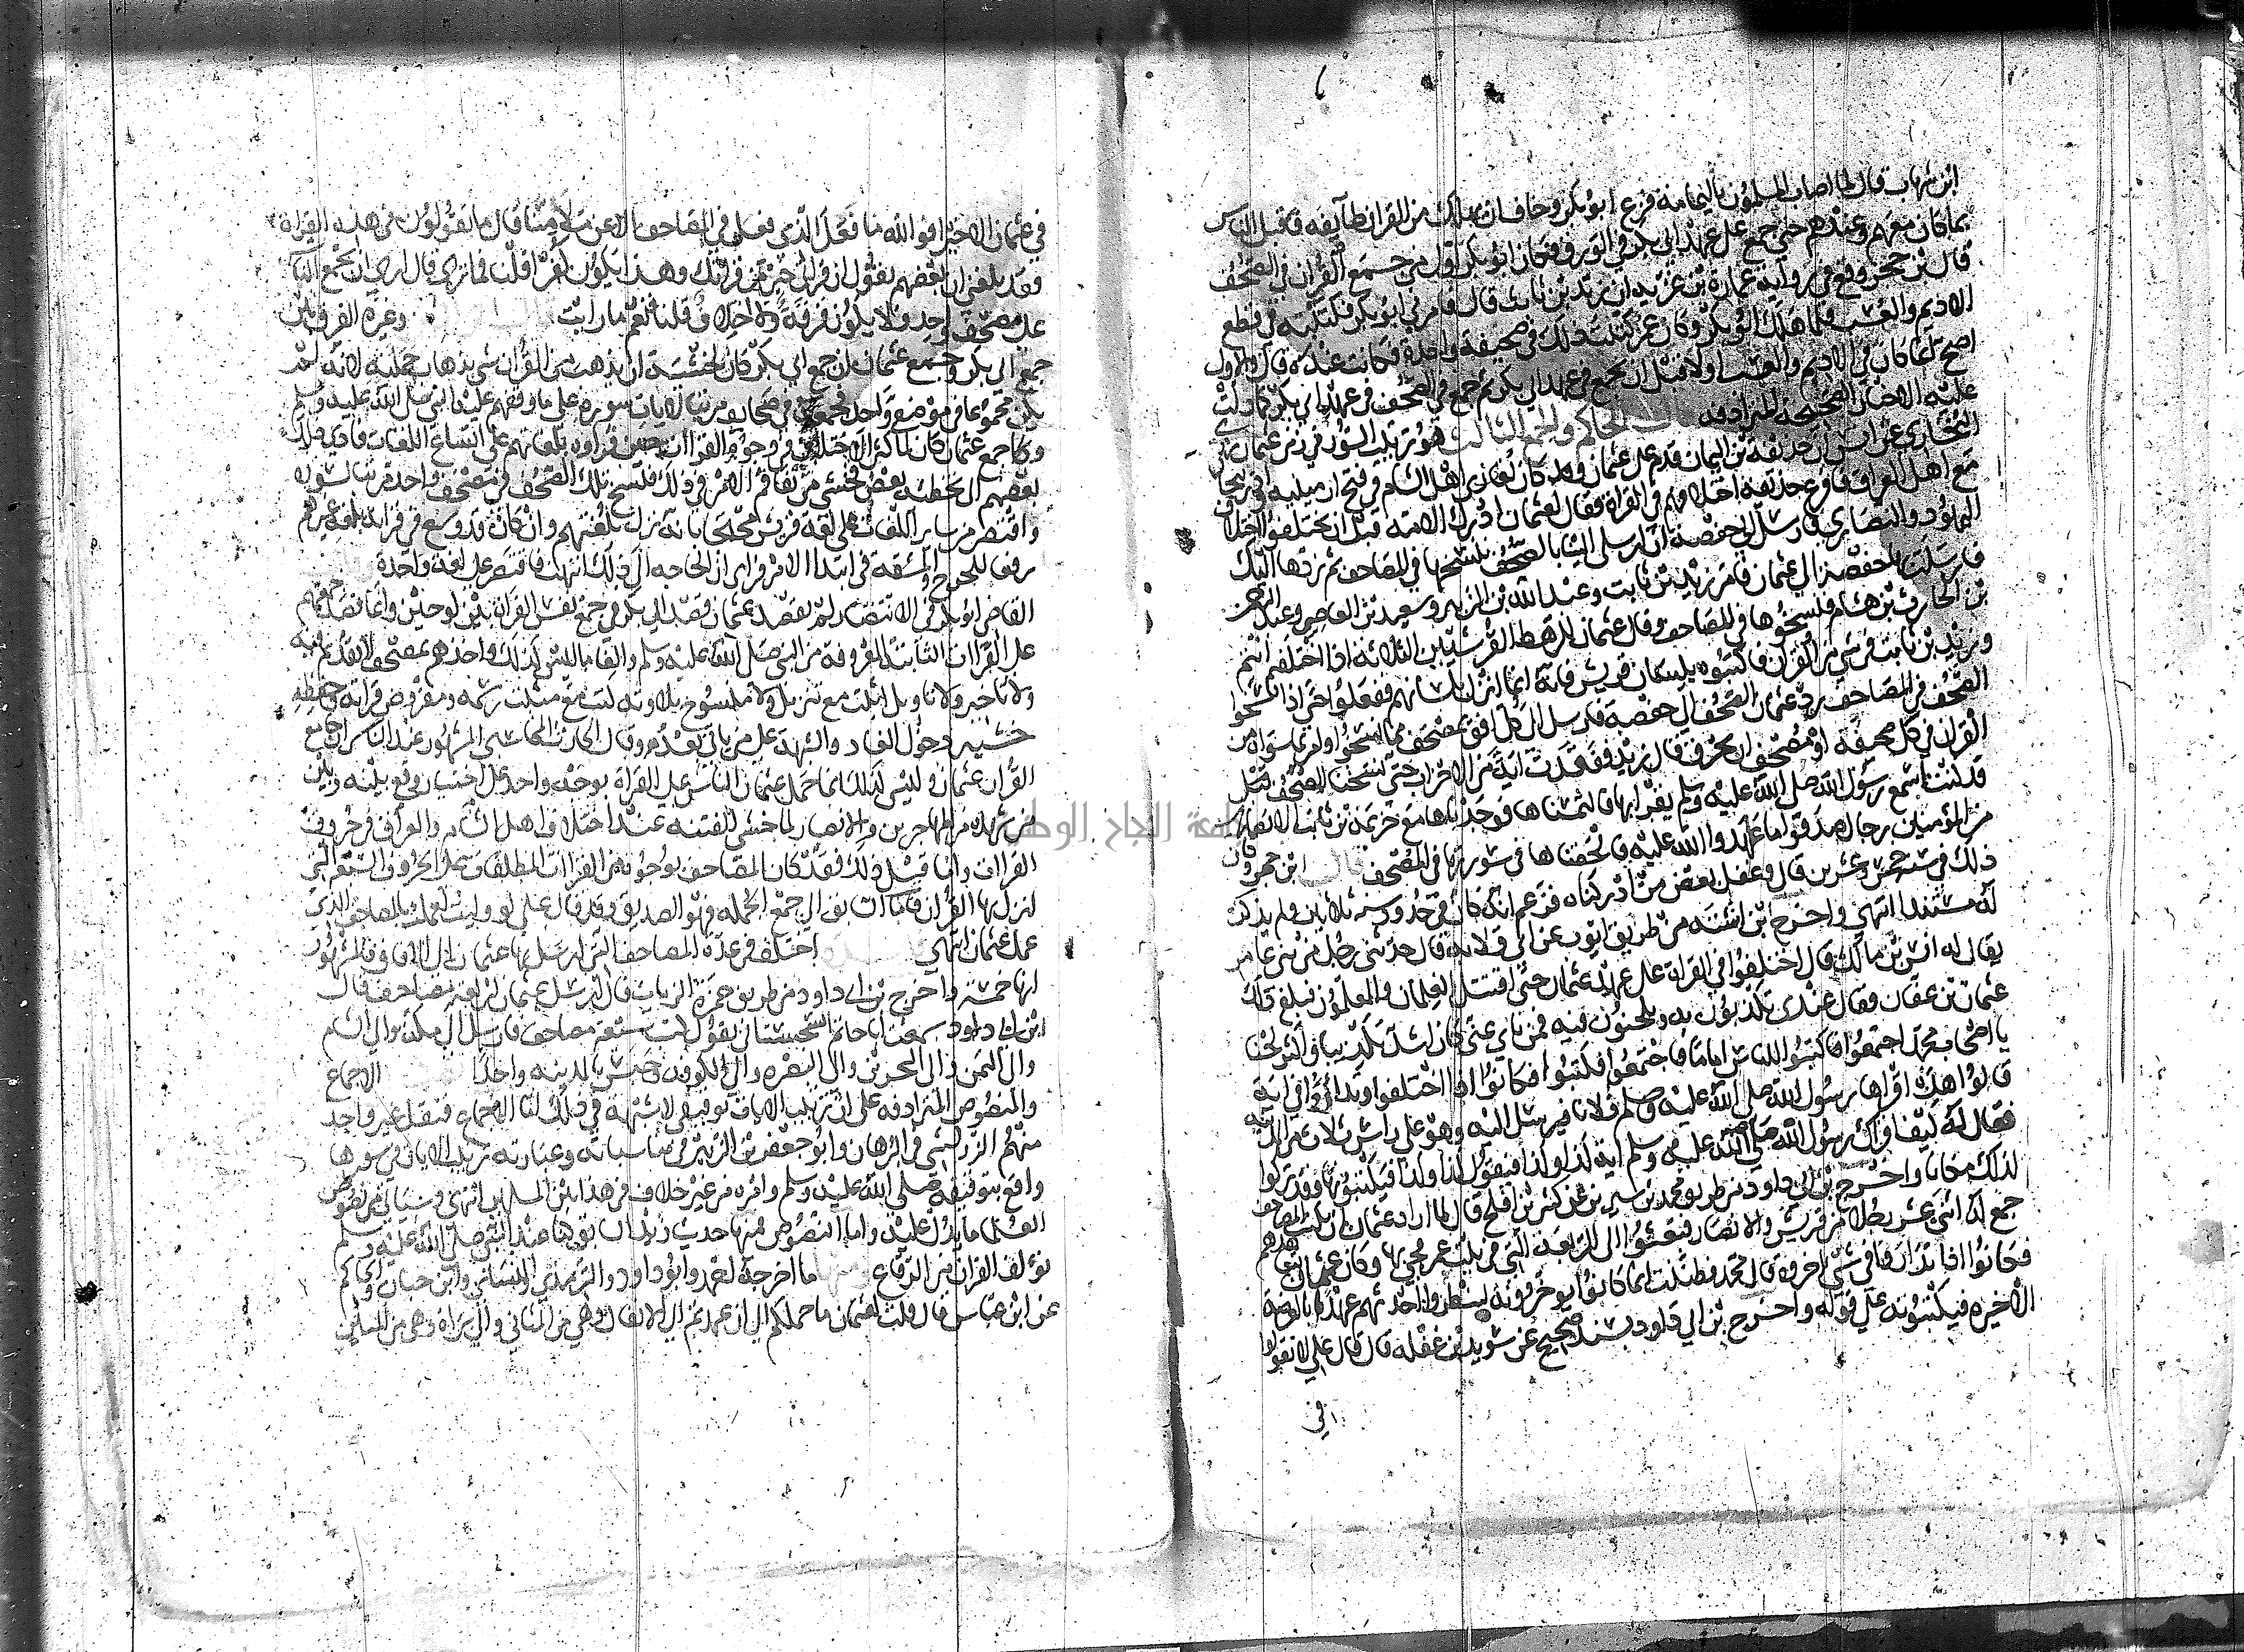 ابن شهاب قال لما اصاب المسلمون باليمامة فزع ابو بكر وخاف ان يهلك من القران طايفه فاقبل الناس
بما كان معهم وعندهم حتى جمع على عهد ابي بكر في الورق فكان ابو بكر اول من جمع القران في الصحف
قال بن حجر ووقع في رواية عمارة بن غزيه ان زيد بن ثابت قال فامرني ابو بكر فكتبته في قطع
الاديم والعسب فلما هلك ابو بكر وكان عمر كتبت ذلك في صحيفة واحدة فكانت عنده قال والاول
اصح انما كان في الاديم والعسب اولا قبل ان يجمع في عهد ابي بكر ثم جمع في الصحف في عهد ابي بكر كما دلت
عليه الاخبار الصحيحة المترادفه قال الحاكم والجمع الثالث هو ترتيب السور في زمن عثمان روى
البخاري عن انس ان حذيفة بن اليمان قدم على عثمان وكان يغازي اهل الشام في فتح ارمينيه واذربيجان
مع اهل العراق فافزع حذيفه اختلافهم في القراة فقال لعثمان ادرك الامه قبل ان يختلفوا اختلاف
اليهود والنصارى فارسل الى حفصة ان ارسلي الينا بالصحف ننسخها في المصاحف ثم نردها اليك
فارسلت بها حفصة الى عثمان فامر زيد بن ثابت وعبد الله بن الزبير وسعيد بن العاص وعبد الرحمن
بن الحارث بن هشام فنسخوها في المصاحف وقال عثمان للرهط القرشيين الثلاثة اذا اختلفتم انتم
وزيد بن ثابت في شي من القران فاكتبوه بلسان قريش فانه انما انزل بلسانهم ففعلوا حتى اذا نسخوا
الصحف في المصاحف رد عثمان الصحف الى حفصة فارسل الى كل افق بمصحف مما نسخوا وامر بما سواه من
القران في كل صحيفة او مصحف ان يحرق قال زيد ففقدت اية من الاحزاب حتى نسخنا المصحف
قد كنت اسمع رسول الله صلى الله عليه وسلم يقرا بها فالتمسناها فوجدناها مع خزيمة بن ثابت الانصاري
من المؤمنين رجال صدقوا ما عاهدوا الله عليه فالحقناها في سورتها في المصحف قال ابن حجر وكان
ذلك في سنه خمس وعشرين قال وغفل بعض من ادركناه فزعم انه كان في حدود سنه ثلاثين ولم يذكر
له مستندا انتهى واخرج ابن اشته من طريق ايوب عن ابي قلابه قال حدثني رجل من بني عامر
يقال له انس بن مالك قال اختلفوا في القراة على عهد عثمان حتى اقتتل الغلمان والمعلمون فبلغ ذلك
عثمان بن عفان فقال عندي تكذبون به وتلحنون فيه فمن ناى عني كان اشد تكذيبا واكثر لحنا
يا اصحاب محمد اجتمعوا فاكتبوا للناس اماما فاجتمعوا فكتبوا فكانوا اذا اختلفوا وتداروا في اية
قالوا هذه اقراها رسول الله صلى الله عليه وسلم فلانا فيرسل اليه وهو على راس ثلاث من المدينه
فقال له كيف اقراك رسول الله صلى الله عليه وسلم اية كذا وكذا فيقول كذا وكذا فيكتبونها وقد تركوا
لذلك مكانا واخرج بن ابي داود من طريق محمد بن سيرين عن كثير بن افلح قال لما اراد عثمان ان يكتب المصاحف
جمع له اثنى عشر رجلا من قريش والانصار فبعثوا الى الربعه التي في بيت عمر فجي بها وكان عثمان يتعاهدهم
فكانوا اذا تدارؤا في شي اخروه قال محمد فظننت انما كانوا يوخرونه لينظروا احدثهم عهدا بالعرضة
الاخيره فيكتبونه على قوله واخرج بن ابي داود بسند صحيح عن سويد بن غفله قال قال علي لا تقولوا
في
في عثمان الا خيرا فوالله ما فعل الذي فعل في المصاحف الا عن ملا منا قال ما تقولون في هذه القراة
فقد بلغني ان بعضهم يقول ان قراتي خير من قراتك وهذا يكون كفرا قلنا فما ترى قال ارى ان يجمع الناس
على مصحف واحد فلا يكون فرقة ولا اختلاف قلنا نعم ما رايت وغيره الفرق بين
جمع ابي بكر وجمع عثمان ان جمع ابي بكر كان لخشية ان يذهب من القران شي بذهاب حملته لانه لم
يكن مجموعا في موضع واحد فجمعه في صحايف مرتبا لايات سوره على ما وقفهم عليه النبي صلى الله عليه وسلم
وكا جمع عثمان كان لما كثر الاختلاف في وجوه القراات حتى قراوه بلغاتهم على اتساع اللغات فادى ذلك
بعضهم الى تخطئه بعض فخشى من تفاقم الامر في ذلك فنسخ تلك الصحف في مصحف واحد مرتبا لسوره
واقتصر من ساير اللغات على لغة قريش محتجا بانه نزل بلغتهم وان كان قد وسع في قراته بلغه غيرهم
رفعا للحرج والمشقه في ابتدا الامر فراى ان الحاجه الى ذلك انتهت فاقتصر على لغة واحدة
القاضي ابو بكر في الانتصار لم يقصد عثمان قصد ابي بكر في جمع نفس القران بين لوحين وانما قصد جمعهم
على القراات الثابتة المعروفه من النبي صلى الله عليه وسلم والغا ما ليس كذلك واخذهم بمصحف لا تقديم فيه
ولا تاخير ولا تاويل اثبت مع تنزيل ولا منسوخ تلاوته كتب مع مثبت رسمه ومفروض قراته وحفظه
خشيه دخول الفساد والشبهة على من ياتي بعد وقال الحارث المحاسبي المشهور عند الناس ان جامع
القران عثمان وليس كذلك انما حمل عثمان الناس على القراة بوجه واحد على اختيار وقع بينه وبين
من شهده من المهاجرين والانصار لما خشى الفتنه عند اختلاف اهل الشام والعراق في حروف
القراات واما قبل ذلك فقد كان المصاحف بوجوه من القراات المطلقات على الحروف السبعه التي
انزل بها القران فاما السابق الى جمع الجمله فهو الصديق وقد قال علي لو وليت لعملت بالمصاحف الذي
عمل عثمان انتهى اختلف في عدة المصاحف التي ارسل بها عثمان الى الافاق فالمشهور
انها خمسة واخرج بن ابي داود من طريق حمزة الزيات قال ارسل عثمان اربعة مصاحف قال
ابن ابي داود سمعت ابا حاتم السجستاني يقول كتب سبعة مصاحف فارسل الى مكة والى الشام
والى اليمن والى البحرين والى البصره والى الكوفه وحبس بالمدينه واحدا الاجماع
والنصوص المترادفه على ان ترتيب الايات توقيفي لا شبهة في ذلك اما الاجماع فنقله غير واحد
منهم الزركشي في البرهان وابو جعفر بن الزبير في مناسباته وعبارته ترتيب الايات في سورها
واقع بتوقيفه صلى الله عليه وسلم وامره من غير خلاف في هذا بين المسلمين انتهى وسياتي من نصوص
العلما ما يدل عليه واما النصوص فمنها حديث زيد السابق كنا عند النبي صلى الله عليه وسلم
نؤلف القران من الرقاع ومنها ما اخرجه احمد وابو داود والترمذي والنساي وابن حبان والحاكم
عن ابن عباس قال قلت لعثمان ما حملكم الى ان عمدتم الى الانفال وهي من المثاني والى براة وهي من المئين
جامعة النجاح الوطنية